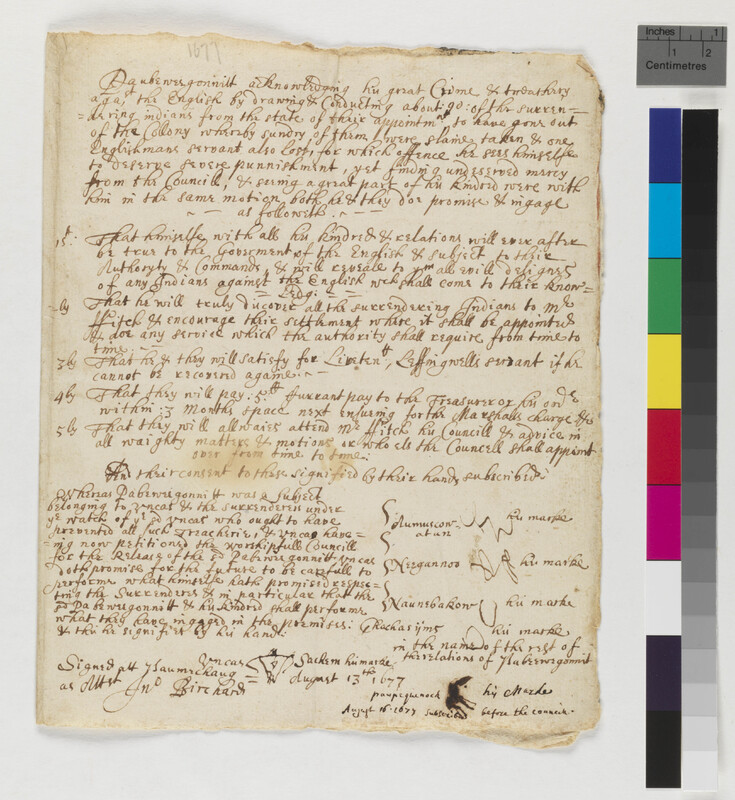 1677
Daubewegonnitt acknowledging his great Crime & treachery
agast the English by drawing & Conducting about 90: of the surren=
=dering indians from the state of their appointmt to have gone out
of the Colony whereby sundry of them were slaine taken & one
Englishmans servant also lost, for which offence he sees himselfe
to deserve severe punnishment, yet finding undeserved mercy
from the Councill, & seeing a great part of his kindred were with
him in the same motion, both he & they doe promise & ingage
as followeth.
1st: That himselfe with all his kindred & relations will ever after
be true to the Goverment of the English & subject to their
Authoryty & Commands, & will reveale to ym all evill designes
of any Indians against the English wch shall come to their know=
=ledg:
2ly That he will truly discover all the surrendering Indians to Mr
ffitch & encourage their settlement where it shall be appointed
& doe any service which the authority shall require from time to
time.
3ly That he & they will satisfy for Lieutent Leffingwells servant if he
cannot be recovered againe.
4ly That they will pay. 5ll Currant pay to the Treasurer or his ordr
within .3 Months space next ensuing for the Marshalls charge &c
5ly That they will allwaies attend Mr ffitch his Councill & advice in
all waighty matters & motions or who els the Councell shall appoint
over from time to time:
And their consent to these signified by their hands subscribed.
Whereas Dabewegonnitt was a Subject
belonging to Uncas & the surrenderers under
ye watch of ye sd Uncas who ought to have
prevented all such Treacherie, & Uncas have=
=ing now petitioned the worshipfull Councill
for the Release of the sd Dabewegonnitt Uncas
doth promise for the future to be carefull to
performe what himselfe hath promised respec=
ting the Surrenderers & in particular that the
sd Dabewegonnitt & his kindred shall performe
what they have ingaged in the premises:
& this he signifies by his hand:
Uncas Sachem his marke
Signed att August 13th 1677
as Attst Jno Birchard
his marke
atun
Neegannoo his marke
Naunebakow his marke
Chachasyms his marke
in the name of the rest of
the relations of
his Marke
August 16. 1677 subscribed before the councill.
Inches 1 2
Centimetres